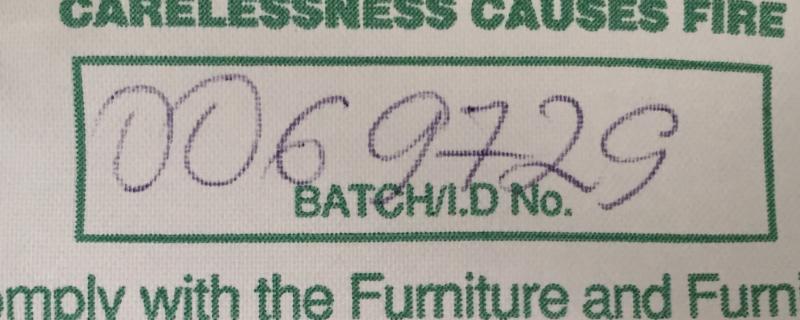 CARELESSNESS CAUSES FIRE
0069729
BATCH/I.D No.
omply with the Furniture and Furni